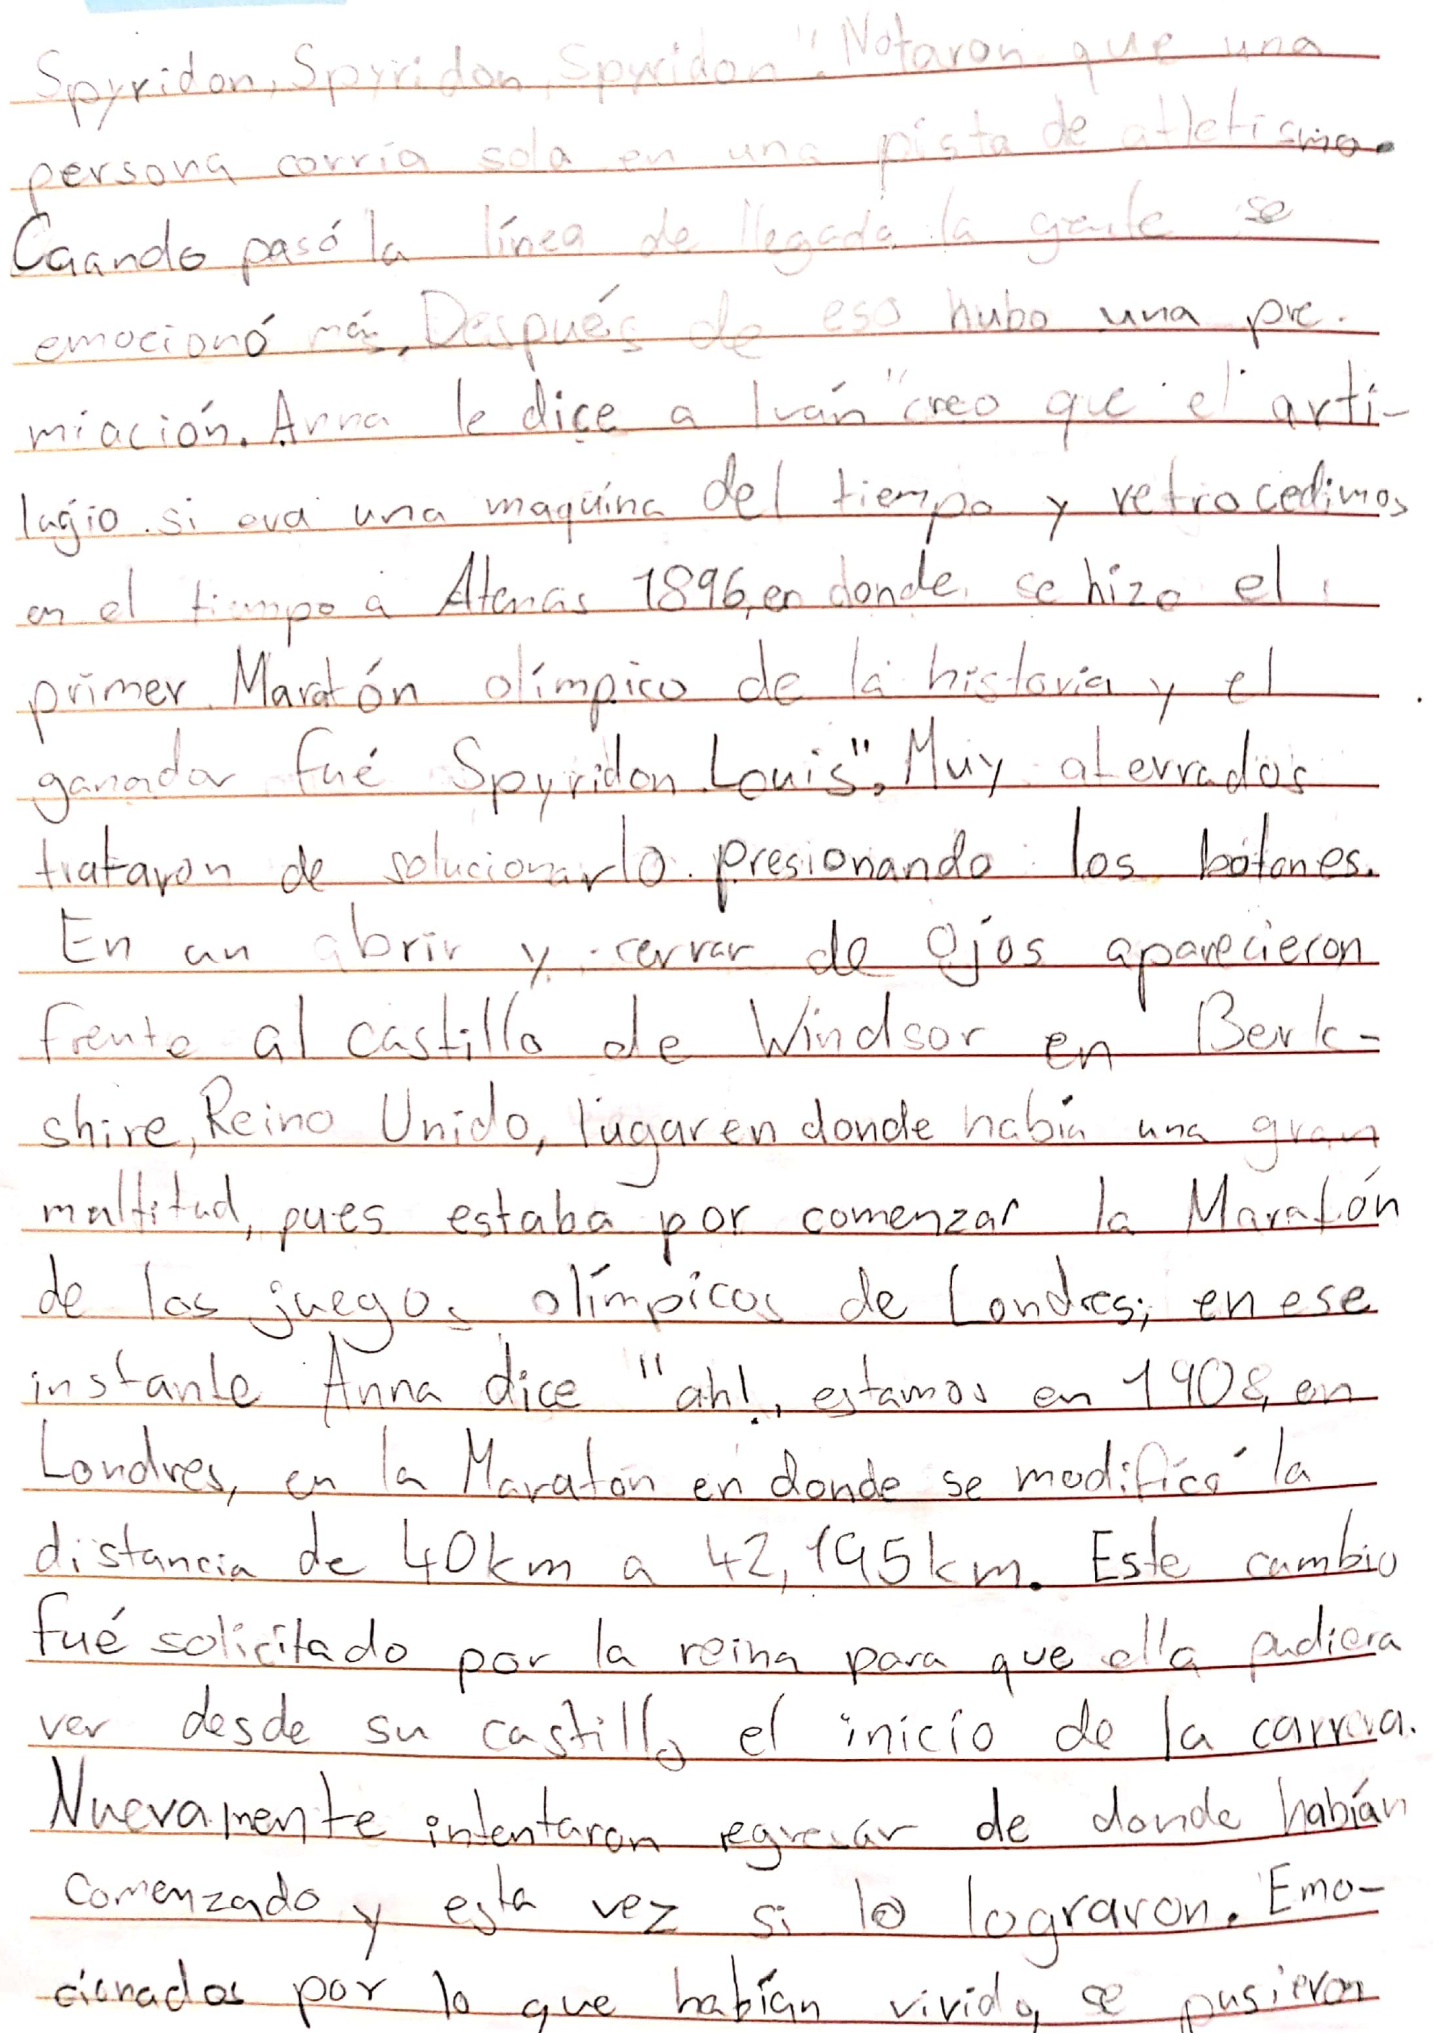 Spyridon, Spyridon, Spyridon". Notaron que una
persona corría sola en una pista de atletismo.
Cuando pasó la línea de llegada la gente se
emocionó más. Después de eso hubo una pre-
miación. Anna le dice a Iván "creo que el arti-
lugio si era una maquina del tiempo y retrocedimos
en el tiempo a Atenas 1896, en donde se hizo el
primer Maratón olímpico de la historia y el
ganador fué Spyridon Louis". Muy aterrados
trataron de solucionarlo presionando los botones.
En un abrir y cerrar de ojos aparecieron
frente al castillo de Windsor en Berk-
shire, Reino Unido, lugar en donde había una gran
multitud, pues estaba por comenzar la Maratón
de los juegos olímpicos de Londres; en ese
instante Anna dice "ah!, estamos en 1908, en
Londres, en la Maratón en donde se modificó la
distancia de 40km a 42,195km. Este cambio
fué solicitado por la reina para que ella pudiera
ver desde su castillo el inicio de la carrera.
Nuevamente intentaron regresar de donde habían
comenzado y esta vez si lo lograron. Emo-
cionados por lo que habían vivido, se pusieron